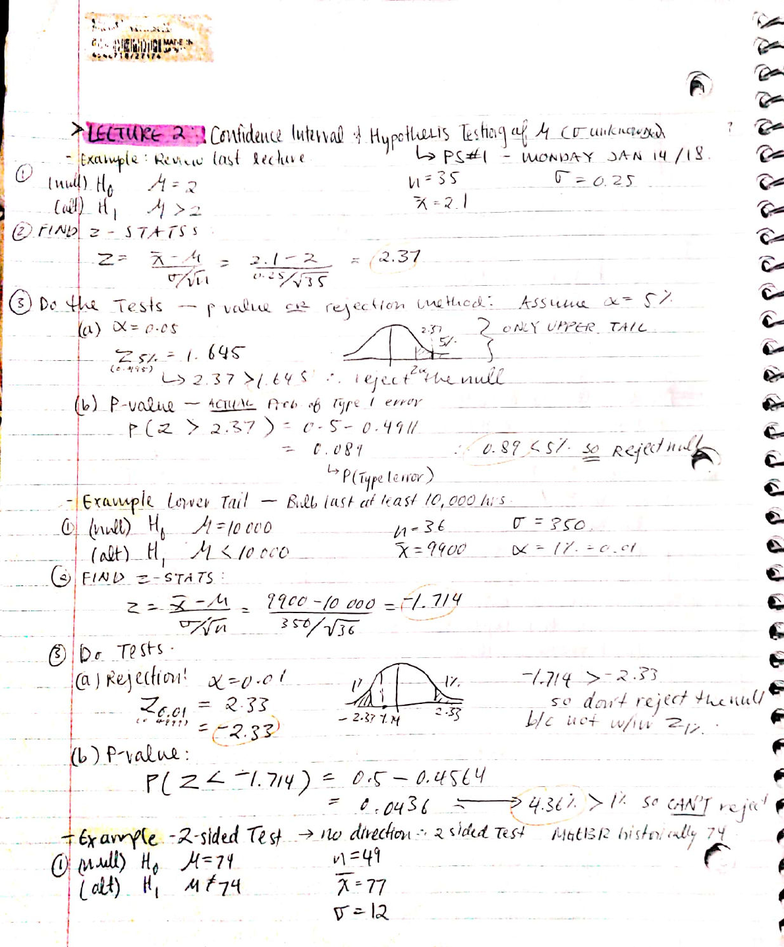 > LECTURE 2: Confidence Interval & Hypothesis Testing of μ (σ unknown) ?
- Example: Review last lecture ↳ PS#1 - MONDAY JAN 14/18.
① (null) H₀ μ = 2 n = 35 σ = 0.25
(alt) H₁ μ > 2 x̄ = 2.1
② FIND Z-STATSS:
Z = x̄ - μ / σ/√n = 2.1 - 2 / 0.25/√35 = 2.37
③ Do the Tests - p value OR rejection method: Assume α = 5%
(a) α = 0.05 2.37 5% } ONLY UPPER TAIL
Z 5% = 1.645
(0.495)
↳ 2.37 > 1.645 ∴ reject the null
(b) P-value - ACTUAL Prob of Type 1 error
P(Z > 2.37) = 0.5 - 0.4911
= 0.089 ∴ 0.89 < 5% so Reject null
↳ P(Type 1 error)
- Example Lower Tail - Bulb last at least 10,000 hrs.
① (null) H₀ μ = 10 000 n = 36 σ = 350
(alt) H₁ μ < 10 000 x̄ = 9900 α = 1% = 0.01
② FIND Z-STATS:
Z = x̄ - μ / σ/√n = 9900 - 10 000 / 350/√36 = -1.714
③ Do Tests.
(a) Rejection! α = 0.01 1% 1% -1.714 > -2.33
Z 0.01 = 2.33 so don't reject the null
= -2.33 2.33 b/c not w/in Z 1%.
(b) P-value:
P(Z < -1.714) = 0.5 - 0.4564
= 0.0436 → 4.36% > 1% so CAN'T reject
- Example - 2-sided Test → no direction ∴ 2 sided Test historically 74
① (null) H₀ μ = 74 n = 49
(alt) H₁ μ ≠ 74 x̄ = 77
σ = 12